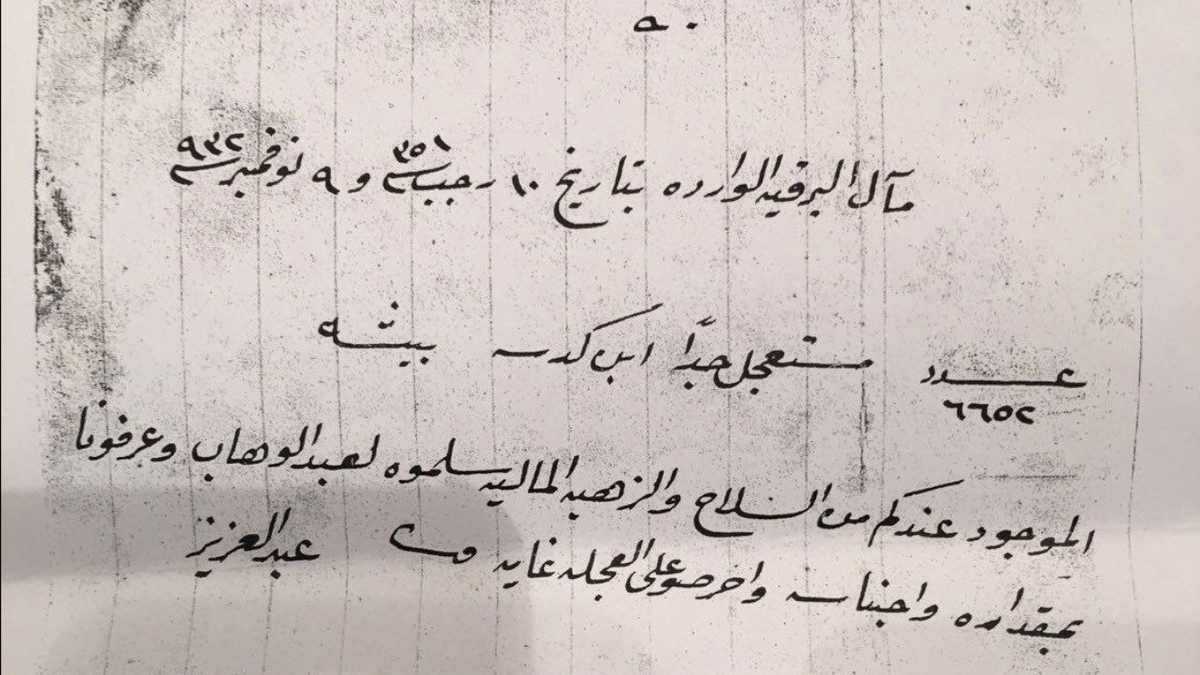 ٩٠
مآل البرقيه الوارده بتاريخ ١٠ رجب سنة ٣٥١ و ٩ نوفمبر سنة ٩٣٢
عدد ٦٦٥٢ مستعجل جداً ابن كدسه بيشه
الموجود عندكم من السلاح والزهبه الماليه سلموه لعبد الوهاب وعرفونا
بمقداره واجناسه واحرصو على العجله غايه عبد العزيز